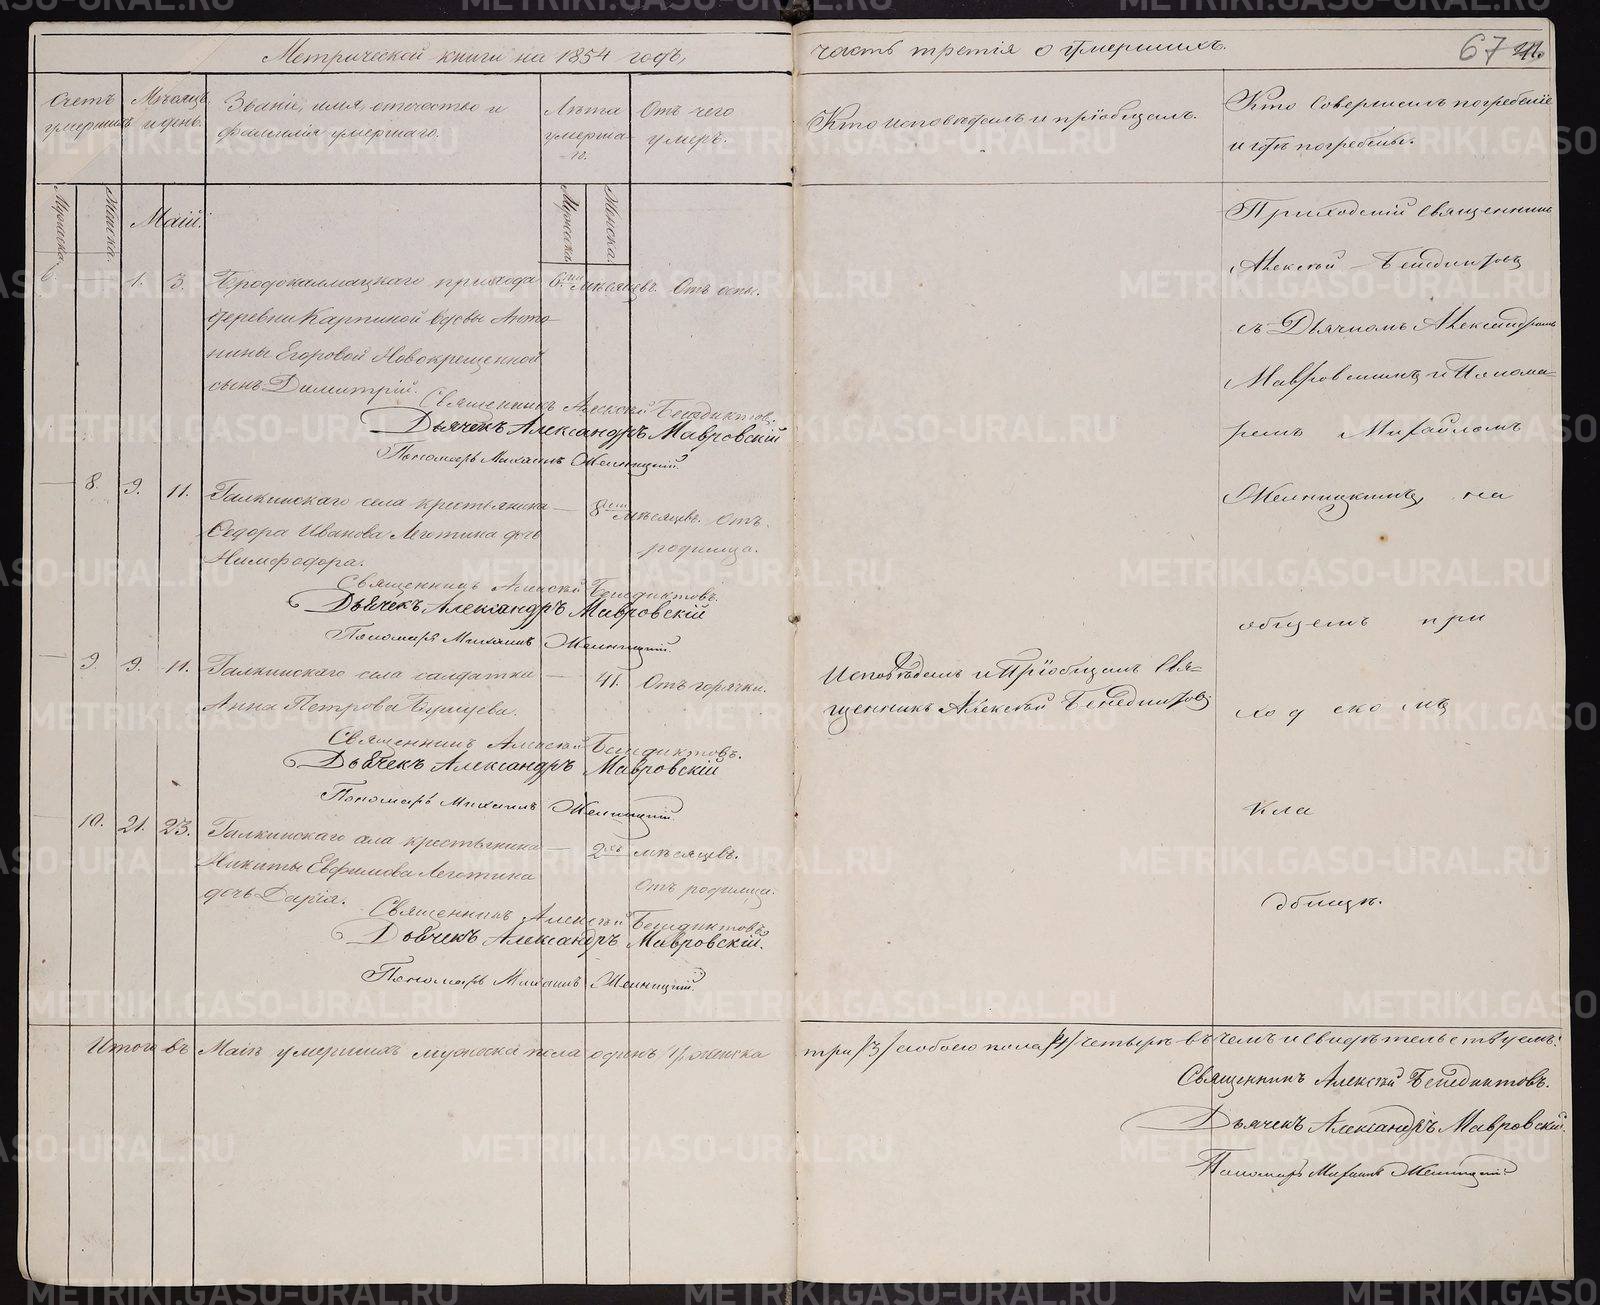 Метрической книги на 1854 годъ,
часть третія о умершихъ.
67
Счетъ умершихъ
Мѣсяцъ и день.
Званіе, имя, отечество и фамилія умершаго.
Лѣта умерша-го.
Отъ чего умеръ.
Кто исповѣдалъ и пріобщалъ.
Кто совершилъ погребеніе и гдѣ погребены.
Мужска.
Женска.
Маій.
Мужска.
Женска.
6. 1. 3. Бродокалмацкаго прихода 6.ти мѣсяцовъ. Отъ оспы.
деревни Карпиной вдовы Анто-
нины Егоровой Новокрещенной
сынъ Димитрій.
Священникъ Алексѣй Бенедиктовъ.
Дьячекъ Александръ Мавровскій
Пономарь Михаилъ Желницкій.
8. 9. 11. Галкинскаго села крестьянина — 8 мѣсяцевъ. Отъ
Ѳедора Иванова Леготина дочь родимца.
Нимфодора.
Священникъ Алексѣй Бенедиктовъ.
Дьячекъ Александръ Мавровскій
Пономарь Михаилъ Желницкій.
9. 9. 11. Галкинскаго села салдатка — 41. Отъ горячки.
Анна Петрова
Священникъ Алексѣй Бенедиктовъ.
Дьячекъ Александръ Мавровскій
Пономарь Михаилъ Желницкій.
10. 21. 23. Галкинскаго села крестьянина — 2хъ мѣсяцевъ.
Никиты Евфимова Леготина Отъ родимца.
дочь Дарія.
Священникъ Алексѣй Бенедиктовъ
Дьячекъ Александръ Мавровскій.
Пономарь Михаилъ Желницкій.
Исповѣдалъ и Пріобщалъ Свя-
щенникъ Алексѣй Бенедиктовъ
Приходскій священникъ
Алексѣй Бенедиктовъ
съ Дьячкомъ Александромъ
Мавровскимъ и Понома-
ремъ Михаиломъ
Желницкимъ, на
общемъ при
ход ско мъ
кла
дбищѣ.
Итого въ Маіѣ умершихъ мужеска пола одинъ /1/, женска
три /3/ обоего пола /4/ четыре въ чемъ и свидѣтельствуемъ:
Священникъ Алексѣй Бенедиктовъ.
Дьячекъ Александръ Мавровскій.
Пономарь Михаилъ Желницкій.
METRIKI.GASO-URAL.RU